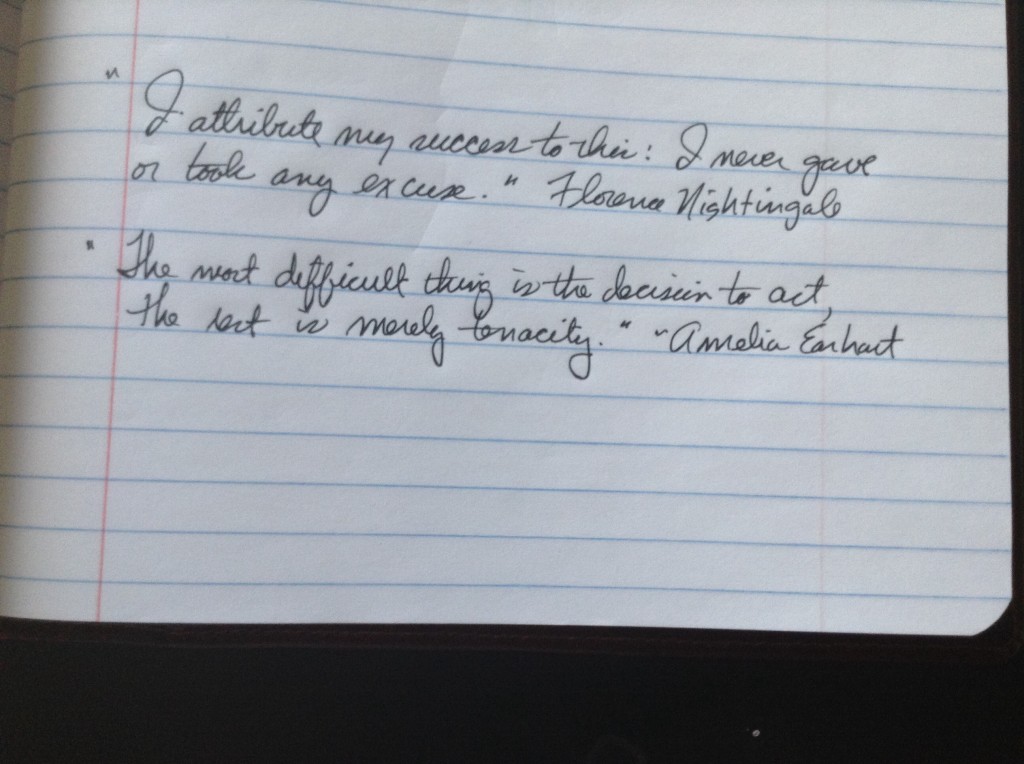 "I attribute my success to this: I never gave
or took any excuse." Florence Nightingale
"The most difficult thing is the decision to act,
the rest is merely tenacity." ~Amelia Earhart